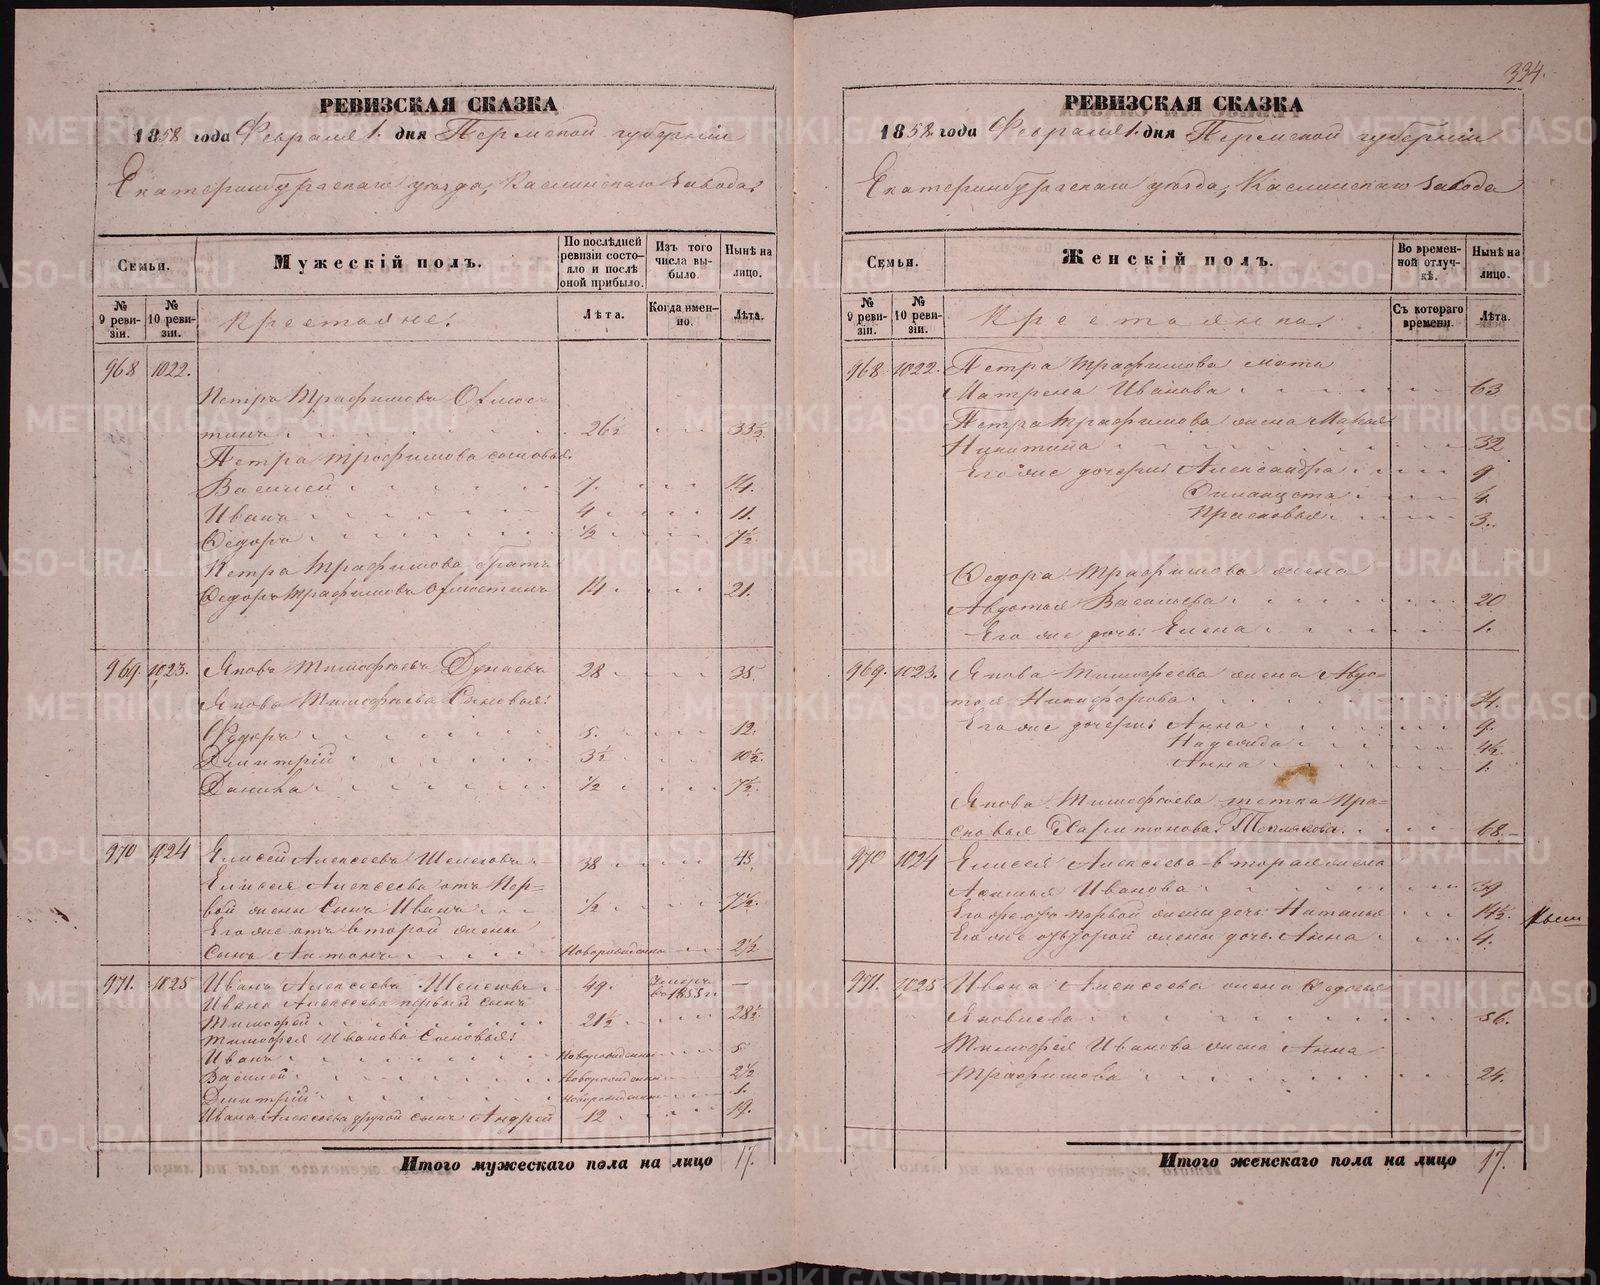 334.
РЕВИЗСКАЯ СКАЗКА
1858 года Февраля 1. дня Пермской губерніи
Екатеринбургскаго уѣзда, Каслинскаго Завода.
Семьи.
Мужескій полъ.
По послѣдней ревизіи состояло и послѣ оной прибыло.
Изъ того числа выбыло.
Нынѣ на лицо.
№ 9 ревизіи.
№ 10 ревизіи.
Крестьяне.
Лѣта.
Когда именно.
Лѣта.
968 1022.
Петръ Трафимовъ
тинъ 26½ 33½
Петра Трофимова сыновья:
Василей 7. 14.
Иванъ 4 11.
Ѳедоръ ½ 7½
Петра Трафимова братъ
Ѳедоръ Трафимовъ 14 21.
969. 1023. Яковъ Тимофѣевъ Дунаевъ 28 35.
Якова Тимофѣева Сыновья:
Ѳедоръ 5. 12.
Дмитрій 3½ 10½
Данила ½ 7½
970 1024 Елисей Алексѣевъ Шелеговъ 38 45
Елисея Алексѣева отъ Пер-
вой жены Сынъ Иванъ ½ 7½.
Его же отъ второй жены
Сынъ Антонъ Новорожденный 2½
971. 1025 Иванъ Алексѣевъ 49. Умеръ въ 1855 г. —
Ивана Алексѣева первый сынъ
Тимофей 21½ 28½
Тимофея Иванова Сыновья:
Иванъ Новорожденный 5
Василей Новорожденный 2½
Дмитрій Новорожденный 1.
Ивана Алексѣева другой сынъ Андрей 12 19.
Итого мужескаго пола на лицо 17.
РЕВИЗСКАЯ СКАЗКА
1858 года Февраля 1. дня Пермской губерніи
Екатеринбургскаго уѣзда, Каслинскаго Завода
Семьи.
Женскій полъ.
Во временной отлучкѣ.
Нынѣ на лицо.
№ 9 ревизіи.
№ 10 ревизіи.
Крестьянки.
Съ котораго времени.
Лѣта.
968 1022. Петра Трафимова мать
Матрена Иванова 63
Петра Трафимова жена Марья
Никитина 32
Его же дочери: Александра 9
4.
Прасковья 3.
Ѳедора Трафимова жена
Авдотья Васильева 20
Его же дочь: Елена 1.
969. 1023. Якова Тимофеева жена Авдо-
тья Никифорова 34.
Его же дочери: Анна 9.
Надежда 4½
Анна 1.
Якова Тимофѣева тетка Пра-
сковья Харитонова 68.
970 1024 Елисея Алексѣева вторая жена
Аксинья Иванова 39
Его же отъ первой жены дочь: Наталья 14½.
Его же отъ второй жены дочь. Анна 4.
971. 1025 Ивана Алексѣева жена Ѳедосья
Яковлева 56.
Тимофѣя Иванова жена Анна
Трафимова 24.
Итого женскаго пола на лицо 17.
METRIKI.GASO-URAL.RU